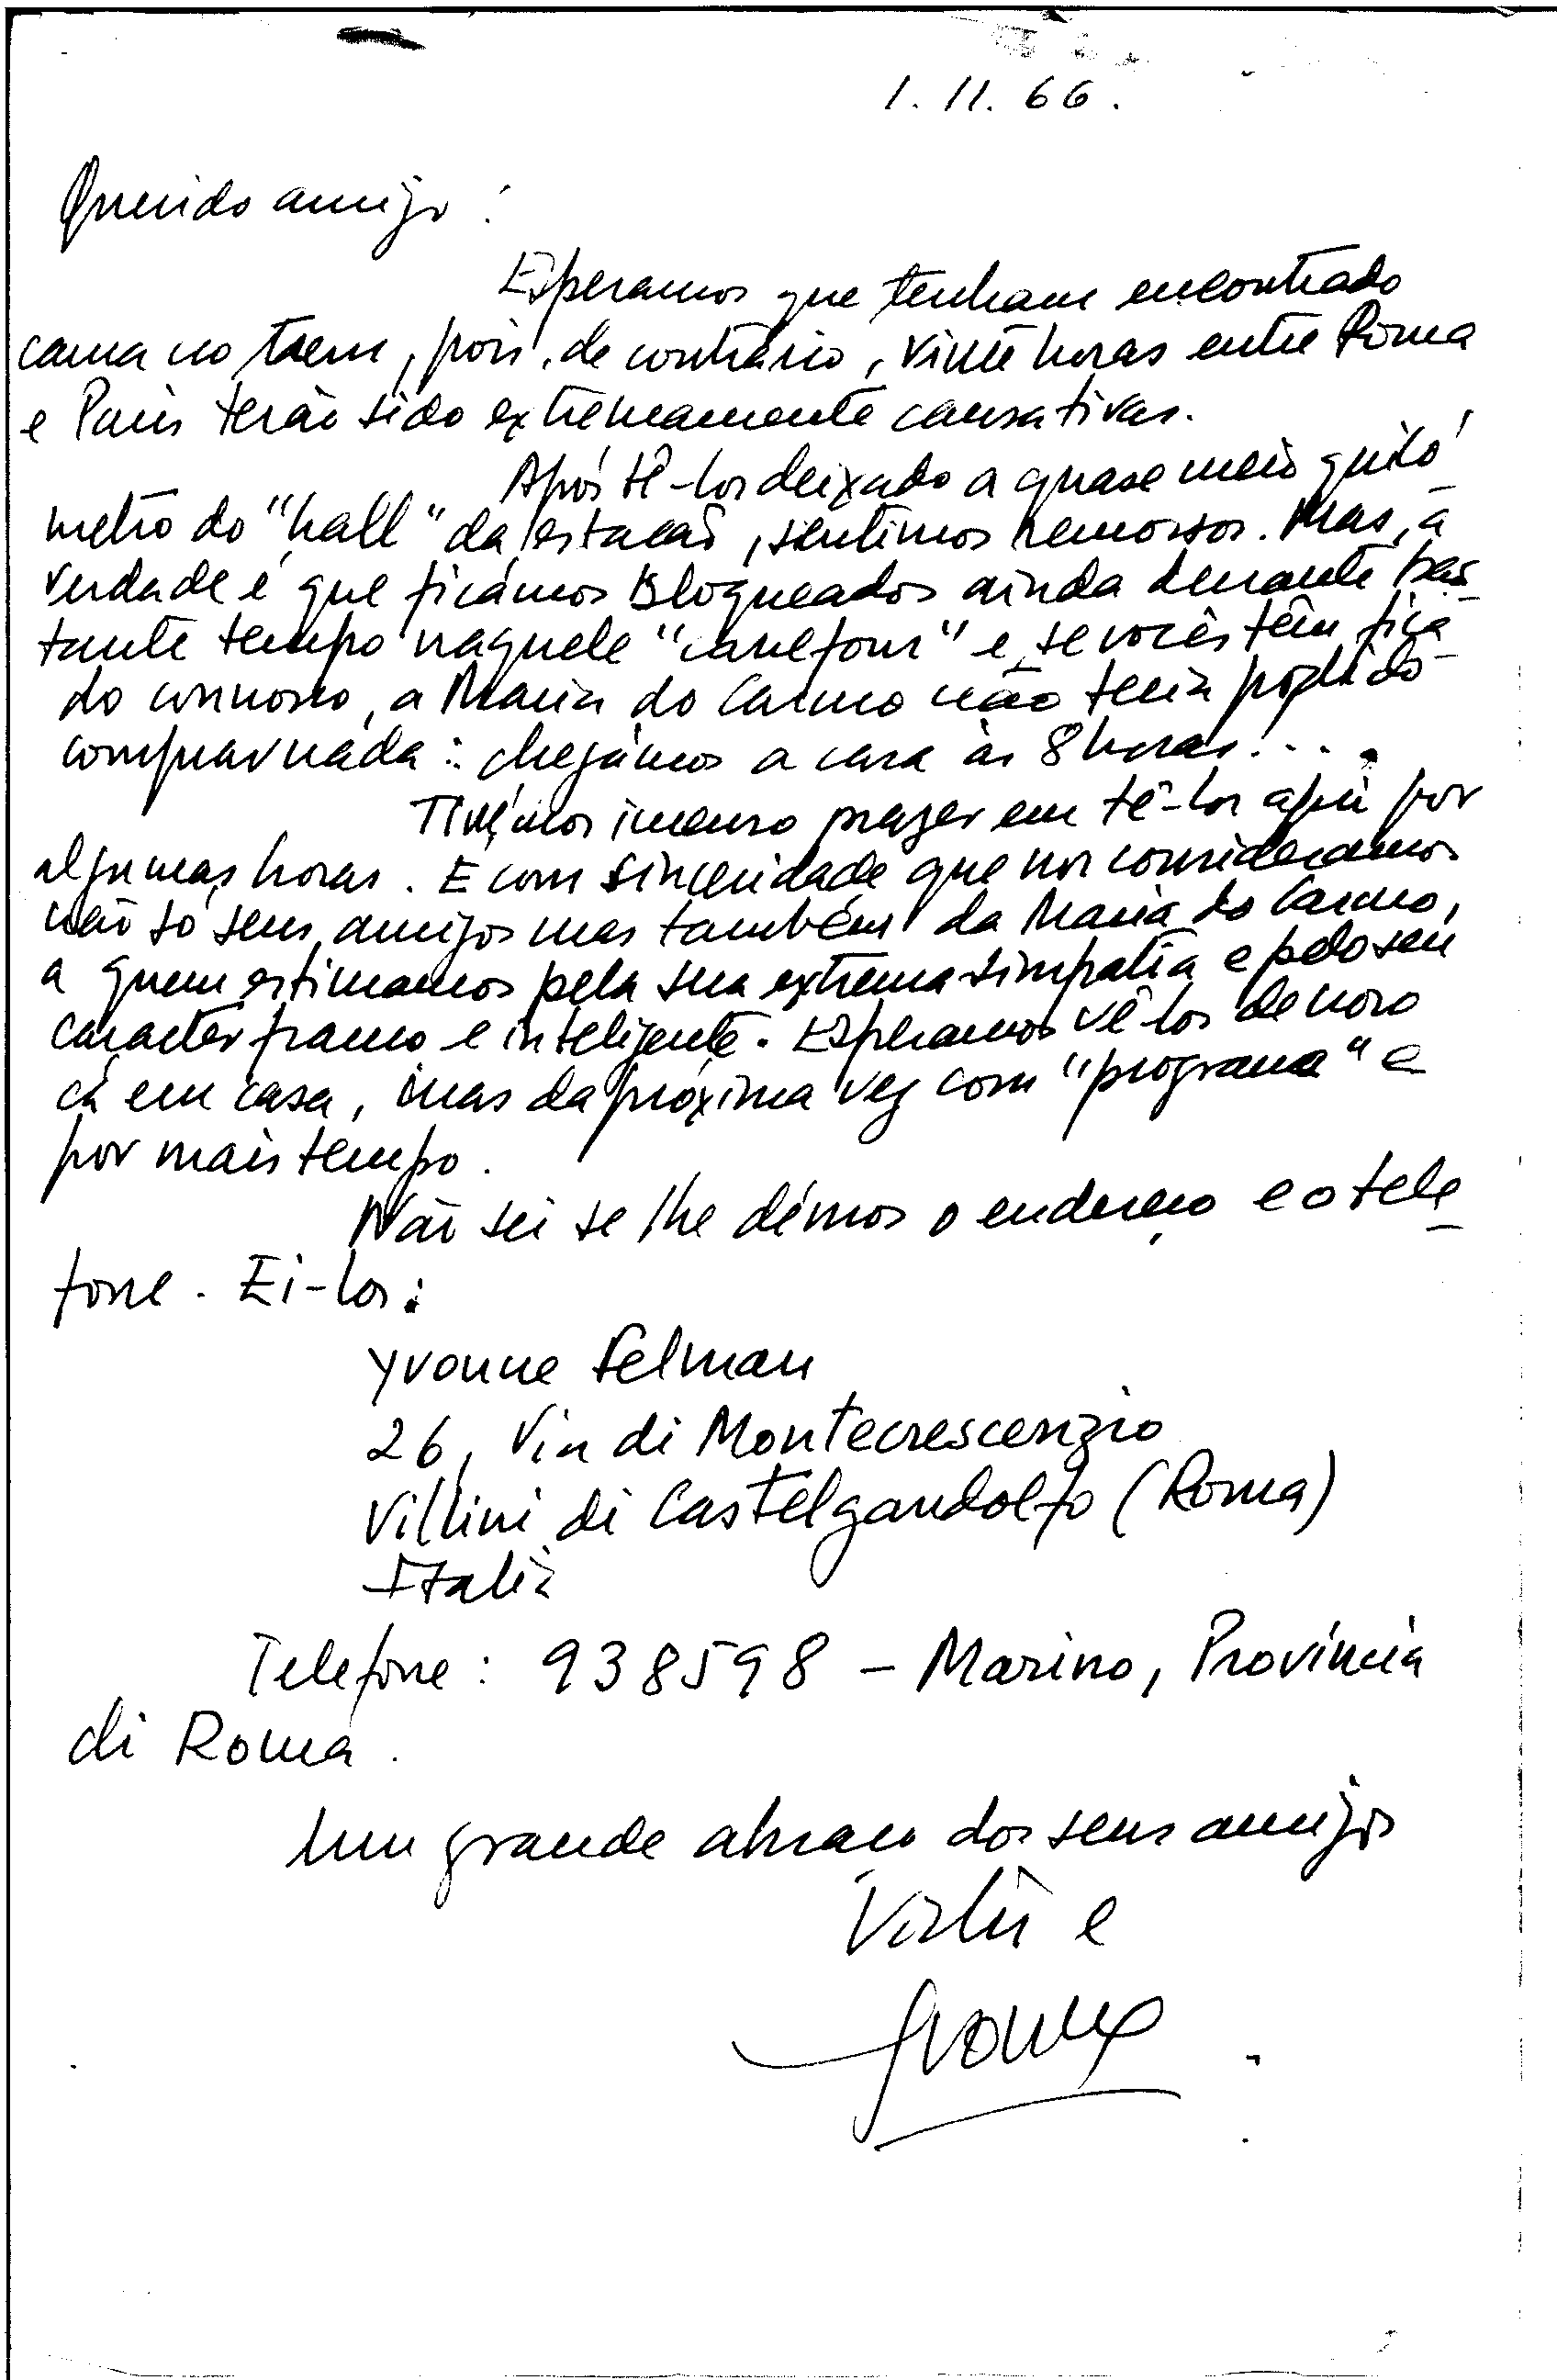 1.11.66.
Querido amigo:
Esperamos que tenham encontrado
cama no trem, pois, de contrário, vinte horas entre Roma
e Paris terão sido extremamente cansativas.
Após tê-los deixado a quase meio quiló-
metro do "hall" da estacão, sentimos remorsos. Mas, a
verdade é que ficámos bloqueados ainda durante bas-
tante tempo naquele "carrefour" e, se vocês têm fica-
do connosco, a Maria do Carmo não teria podido
comprar nada: chegámos a casa às 8 horas!...
Tivémos imenso prazer em tê-los aqui por
algumas horas. E com sinceridade que nos consideramos
não só seus amigos mas também da Maria do Carmo,
a quem estimamos pela sua extrema simpatia e pelo seu
caracter franco e inteligente. Esperamos vê-los de novo
cá em casa, mas da próxima vez com "programa" e
por mais tempo.
Não sei se lhe démos o endereço e o tele-
fone. Ei-los:
Yvonne Felman
26, Via di Montecrescenzio
Villini di Castelgandolfo (Roma)
Italia
Telefone: 938598 - Marino, Provincia
di Roma.
Um grande abraço dos seus amigos
e
Yvonne